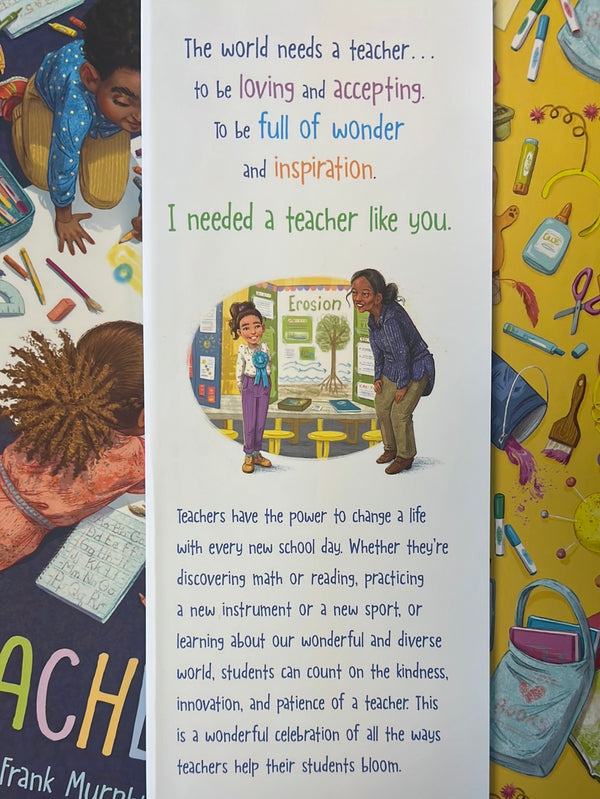 The world needs a teacher...
to be loving and accepting.
To be full of wonder
and inspiration.
I needed a teacher like you.
Erosion
Teachers have the power to change a life
with every new school day. Whether they're
discovering math or reading, practicing
a new instrument or a new sport, or
learning about our wonderful and diverse
world, students can count on the kindness,
innovation, and patience of a teacher. This
is a wonderful celebration of all the ways
teachers help their students bloom.
ACHE
Frank Murph
GLUE